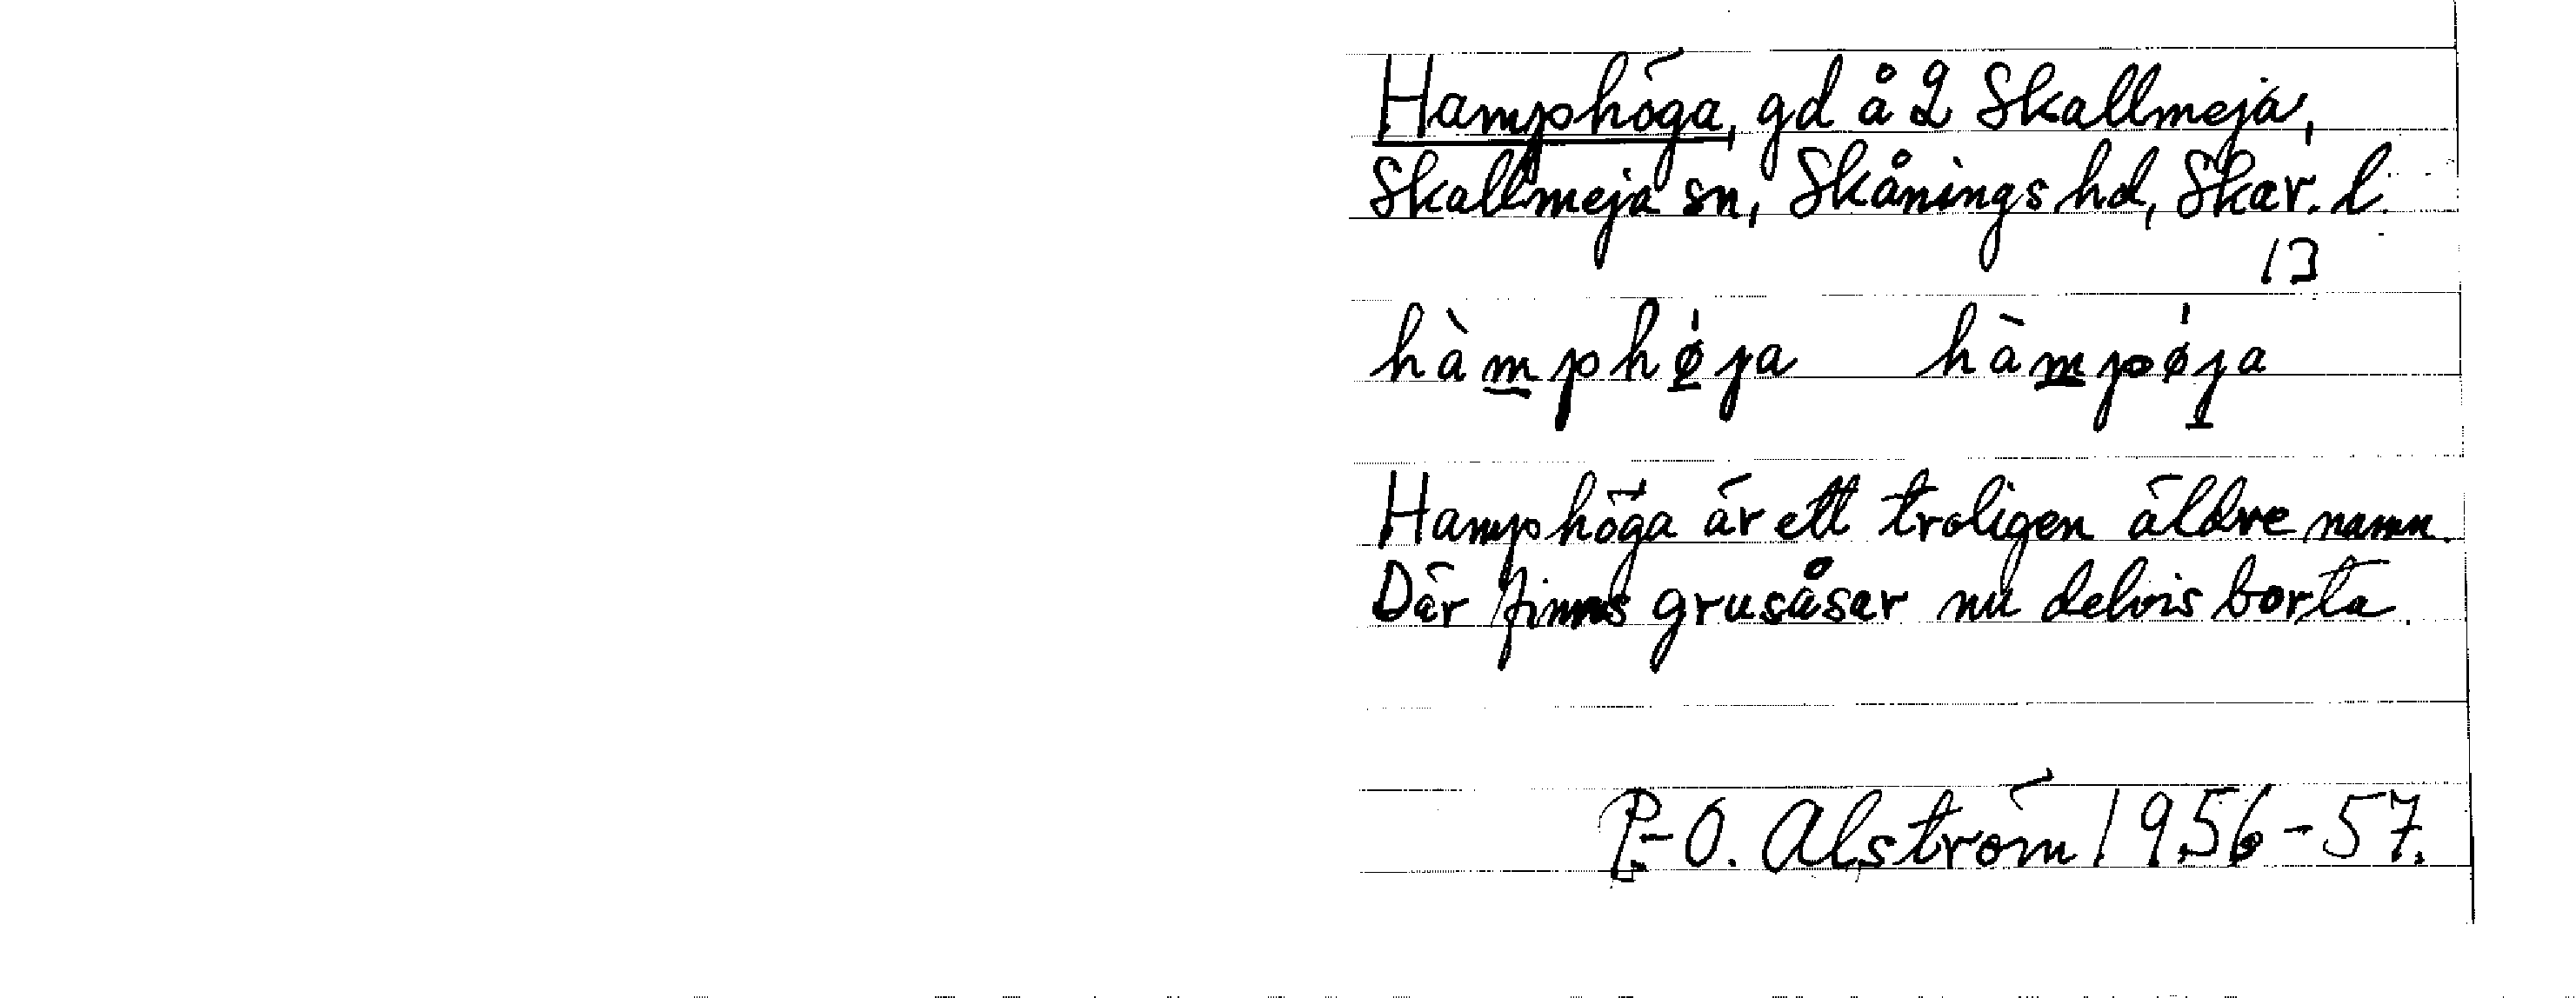 Hamphöga, gd å 2 Skallmeja,
Skallmeja sn, Skånings hd, Skar. l.
13
hàmphø̍ja hàmpø̍ja
Hamphöga är ett troligen äldre namn.
Där finns grusåsar nu delvis borta.
P.-O. Alström 1956-57.